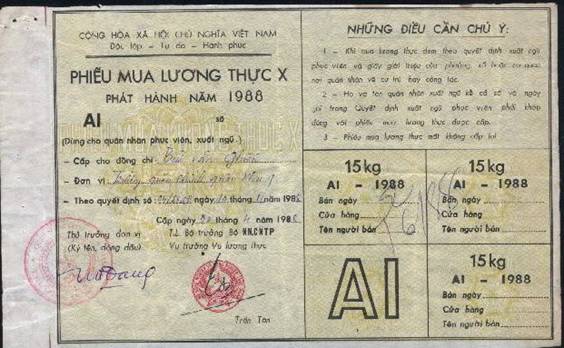 CỘNG HÒA XÃ HỘI CHỦ NGHĨA VIỆT NAM
Độc lập - Tự do - Hạnh phúc
PHIẾU MUA LƯƠNG THỰC X
PHÁT HÀNH NĂM 1988
AI số
(Dùng cho quân nhân phục viên, xuất ngũ)
- Cấp cho đồng chí
- Đơn vị
- Theo quyết định số ngày tháng
Cấp ngày 20 tháng 4 năm 1988
Thủ trưởng đơn vị
(Ký tên, đóng dấu)
TL Bộ trưởng Bộ NN.CNTP
Vụ trưởng Vụ lương thực
Trần Tân
NHỮNG ĐIỀU CẦN CHÚ Ý:
1 - Khi mua lương thực đem theo quyết định xuất ngũ
phục viên và giấy giới thiệu của phường, xã hoặc cơ quan
nơi quân nhân về cư trú hay công tác.
2 - Họ và tên quân nhân xuất ngũ kể cả số và ngày
ghi trong Quyết định xuất ngũ phục viên phải khớp
đúng với phiếu mua lương thực được cấp.
3 - Phiếu mua lương thực mất không cấp lại
15kg
AI - 1988
Bán ngày
Cửa hàng
Tên người bán
15kg
AI - 1988
Bán ngày
Cửa hàng
Tên người bán
AI
15kg
AI - 1988
Bán ngày
Cửa hàng
Tên người bán